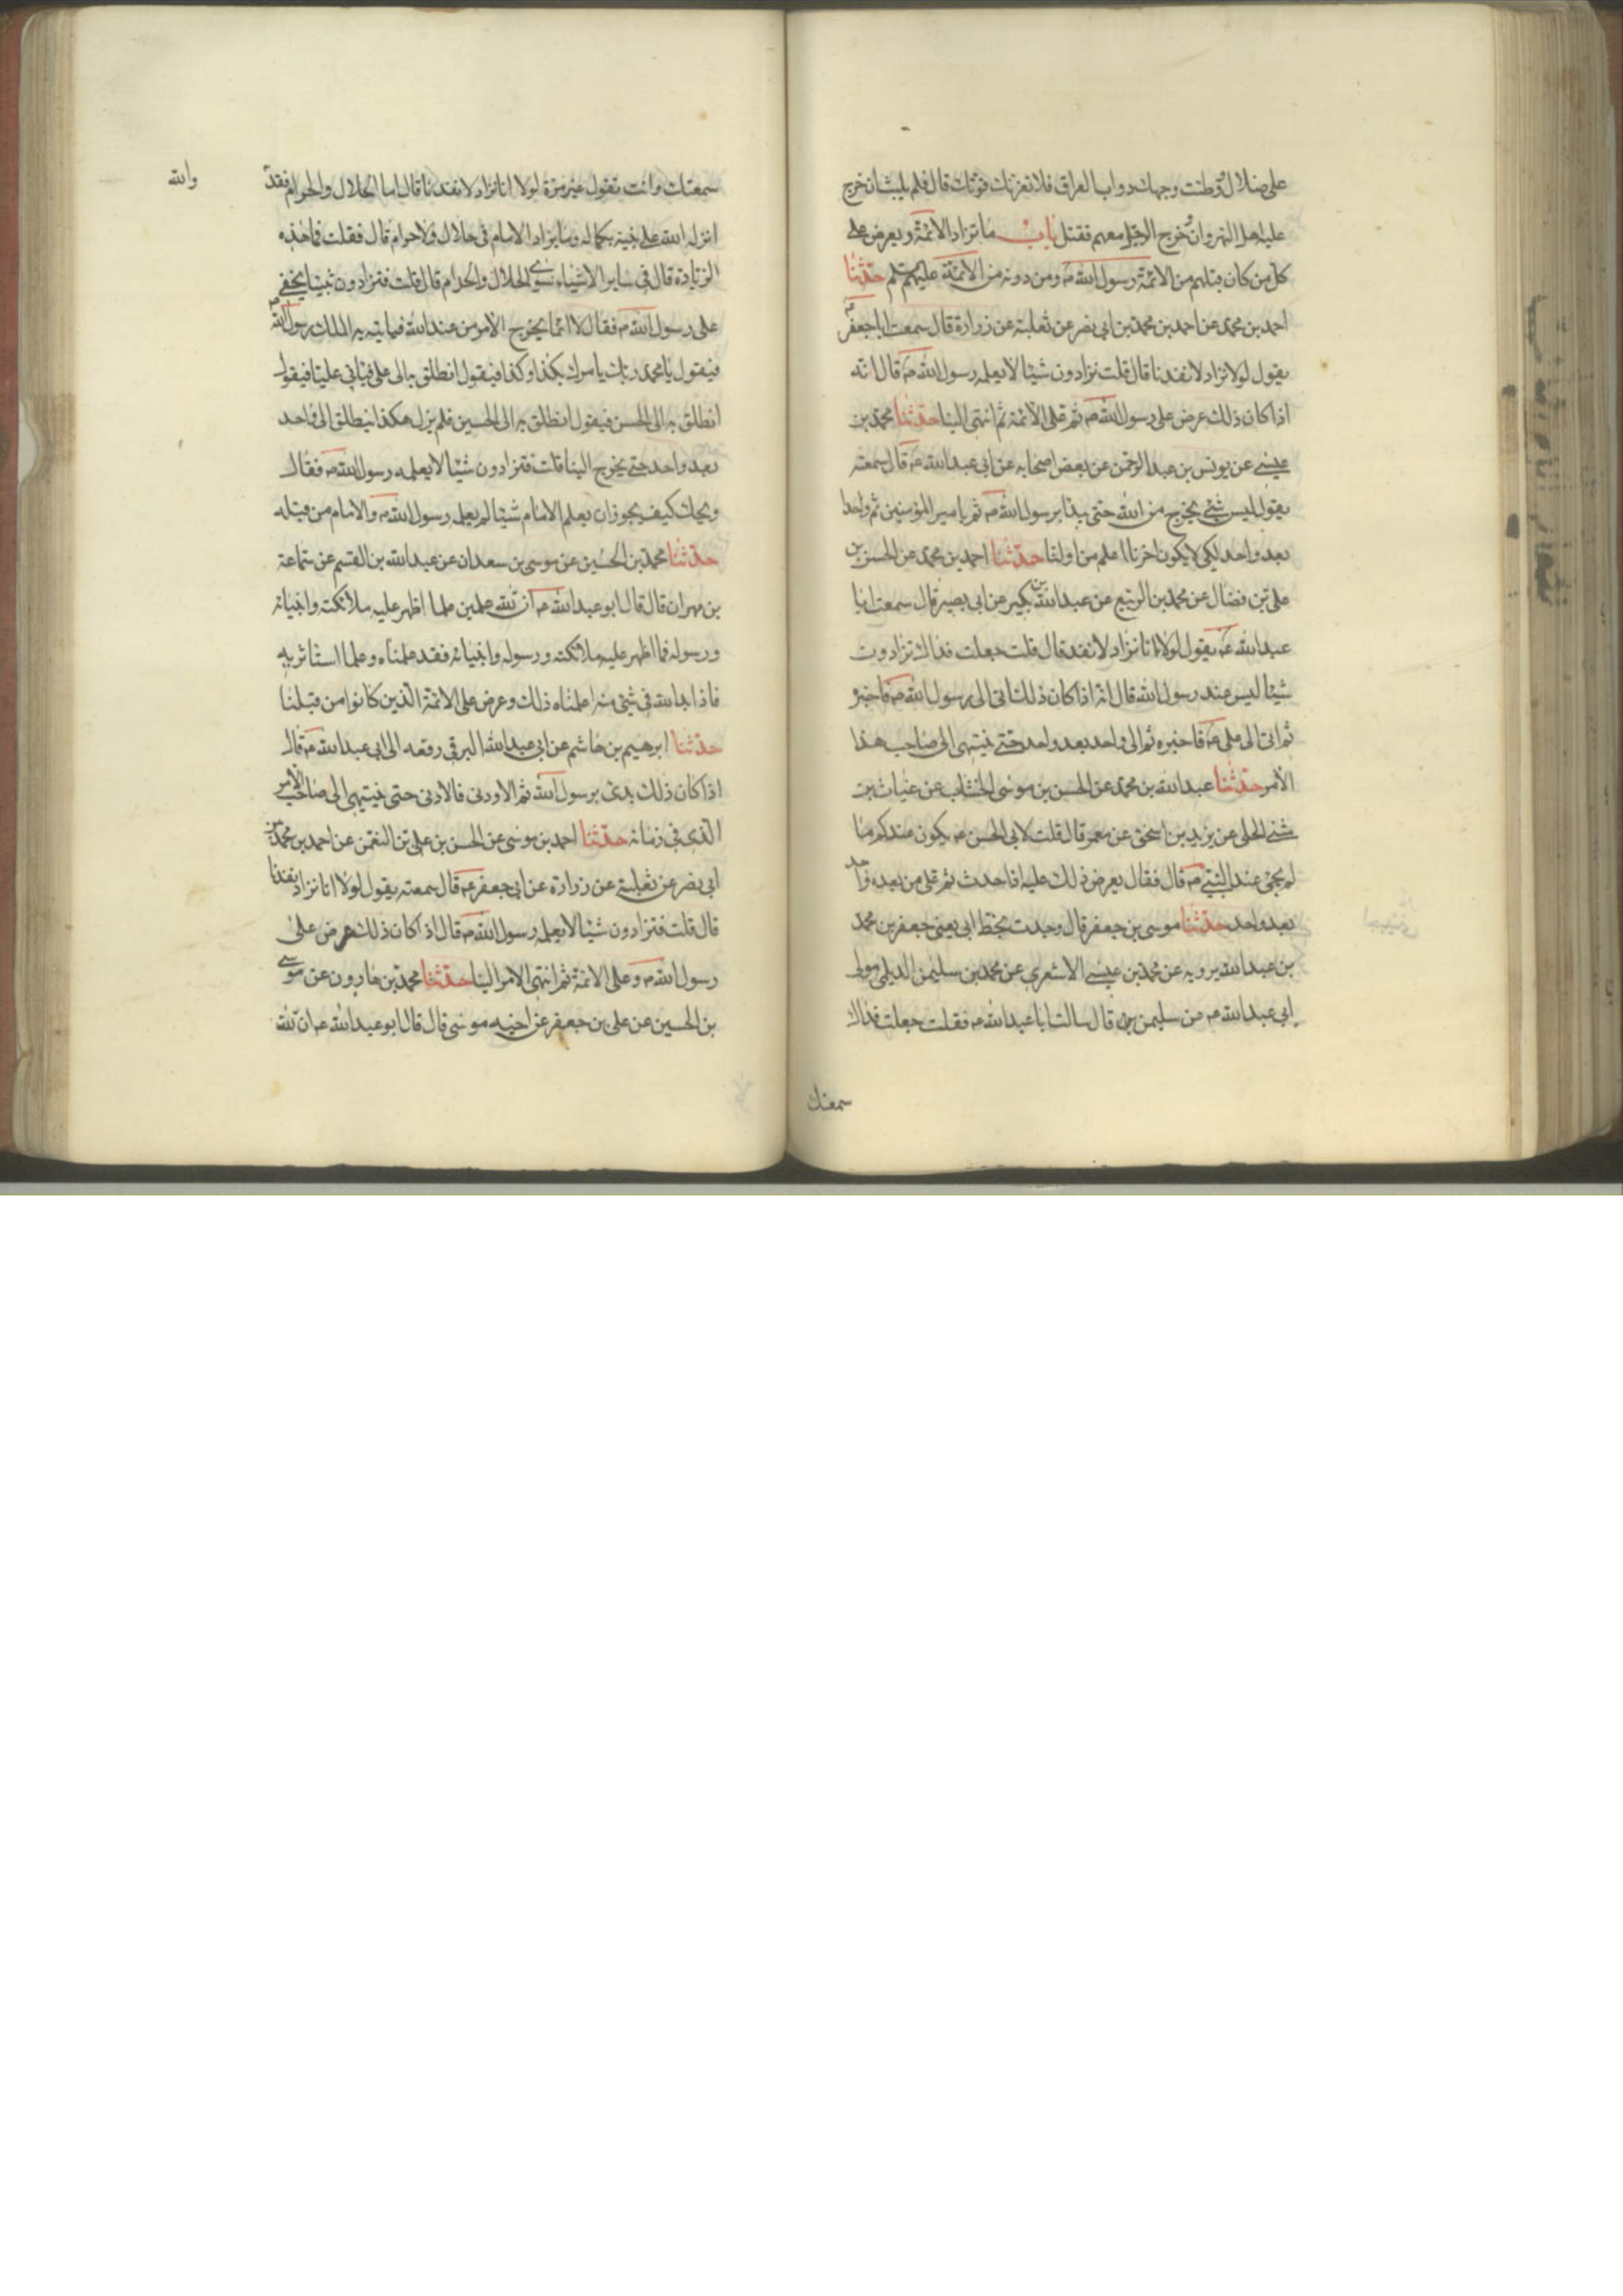 على ضلال وطنت وجهك دواب العراق فلا تغرنك قال فلم يلبث ان خرج
عليه اهل النهروان وخرج الرجل معهم فقتل باب ما تزاد الائمة ويعرض على
كل من كان قبلهم من الائمة رسول الله ص ومن دونه من الائمة عليهم سلم حدثنا
احمد بن محمد عن احمد بن محمد بن ابي نصر عن ثعلبة عن زرارة قال سمعت اباجعفر ع
يقول لولا نزاد لانفدنا قال قلت تزادون شيئا لا يعلمه رسول الله ص قال انه
اذا كان ذلك عرض على رسول الله ص ثم على الائمة ثم انتهى الينا حدثنا محمد بن
عيسى عن يونس بن عبد الرحمن عن بعض اصحابه عن ابي عبد الله ع قال سمعته
يقول ليس شئ يخرج من الله حتى يبدا برسول الله ص ثم بامير المؤمنين ثم واحدا
بعد واحد لكي لا يكون اخرنا اعلم من اولنا حدثنا احمد بن محمد عن الحسن بن
على بن فضال عن محمد بن الربيع عن عبد الله بن بكير عن ابي بصير قال سمعت ابا
عبد الله ع يقول لولا انا نزاد لانفد قال قلت جعلت فداك تزادون
شيئا ليس عند رسول الله قال انه اذا كان ذلك اتى الى رسول الله ص فاخبر
ثم اتى الى على ع فاخبره ثم الى واحد بعد واحد حتى ينتهى الى صاحب هذا
الامر حدثنا عبد الله بن محمد عن الحسن بن موسى الخشاب عن غياث بن
مثنى الحلبى عن يزيد بن اسحق عن معمر قال قلت لابي الحسن ع يكون عندكم ما
لم يجئ عند النبي ص قال فقال يعرض ذلك عليه اذا حدث ثم على من بعده واحد
بعد واحد حدثنا موسى بن جعفر قال وجدت بخط ابي يعنى جعفر بن محمد
بن عبد الله يرويه عن محمد بن عيسى الاشعري عن محمد بن سليمن الديلمى مولى
ابي عبد الله ع عن سليمن قال سالت ابا عبد الله ع فقلت جعلت فداك
سمعتك
سمعتك وانت تقول غير مرة لولا انا نزاد لانفدنا قال اما الحلال والحرام فقد والله
انزله الله على نبيه بكماله وما يزاد الامام في حلال ولا حرام قال فقلت فما هذه
الزيادة قال في ساير الاشياء سوى الحلال والحرام قال قلت فتزادون شيئا يخفى
على رسول الله ص فقال لا انما يخرج الامر من عند الله فياتيه به الملك رسول الله ص
فيقول يا محمد ربك يامرك بكذا وكذا فيقول انطلق به الى على فياتي عليا فيقول
انطلق به الى الحسن فيقول انطلق به الى الحسين فلم يزل هكذا ينطلق الى واحد
بعد واحد حتى يخرج الينا قلت فتزادون شيئا لا يعلمه رسول الله ص فقال
ويحك كيف يجوز ان يعلم الامام شيئا لم يعلمه رسول الله ص والامام من قبله
حدثنا محمد بن الحسين عن موسى بن سعدان عن عبد الله بن القسم عن سماعة
بن مهران قال قال ابو عبد الله ع ان لله علمين علما اظهر عليه ملائكته وانبيائه
ورسوله فما اظهر عليه ملائكته ورسوله وانبيائه فقد علمناه وعلما استاثر به
فاذا بدا لله في شئ منه اعلمناه ذلك وعرض على الائمة الذين كانوا من قبلنا
حدثنا ابرهيم بن هاشم عن ابي عبد الله البرقي رفعه الى ابي عبد الله ع قال
اذا كان ذلك بدئ برسول الله ثم الاودنى فالادنى حتى ينتهى الى صاحب الامر
الذي في زمانه حدثنا احمد بن موسى عن الحسن بن على بن النعمن عن احمد بن محمد بن
ابي نصر عن ثعلبة عن زرارة عن ابي جعفر ع قال سمعته يقول لولا انا نزاد نفدنا
قال قلت فتزادون شيئا لا يعلمه رسول الله ص قال اذا كان ذلك عرض على
رسول الله ص وعلى الائمة ثم انتهى الامر الينا حدثنا محمد بن هارون عن موسى
بن الحسين عن على بن جعفر عن اخيه موسى قال قال ابو عبد الله ع ان لله